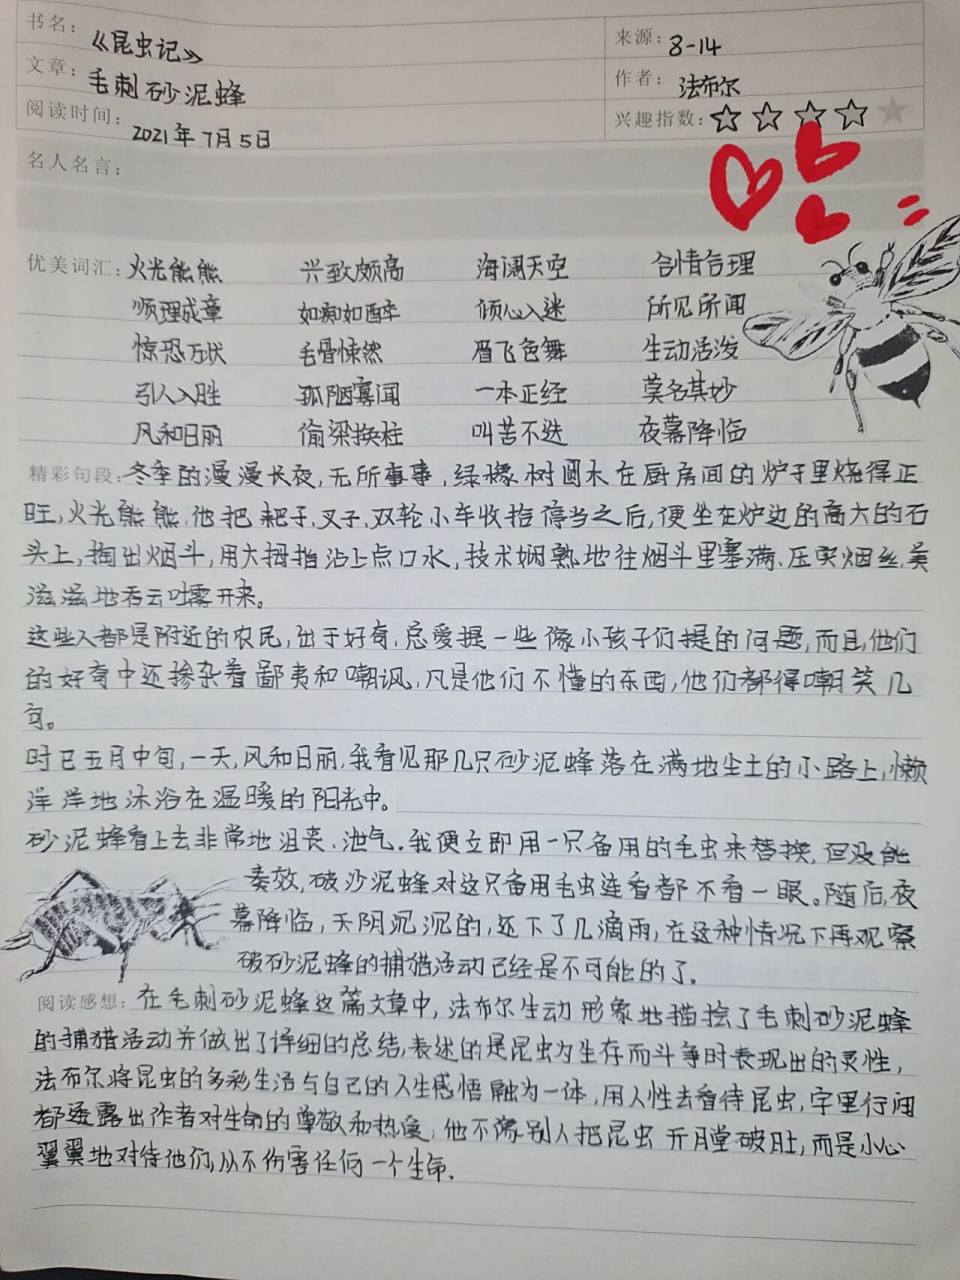 书名：《昆虫记》
来源：8-14
文章：毛刺砂泥蜂
作者：法布尔
阅读时间：2021年7月5日
兴趣指数：
名人名言：
优美词汇：火光熊熊 兴致颇高 海阔天空 合情合理
顺理成章 如痴如醉 倾心入迷 所见所闻
惊恐万状 毛骨悚然 眉飞色舞 生动活泼
引人入胜 孤陋寡闻 一本正经 莫名其妙
风和日丽 偷梁换柱 叫苦不迭 夜幕降临
精彩句段：冬季的漫漫长夜，无所事事，绿橡树圆木在厨房间的炉子里烧得正
旺，火光熊熊，他把耙子、叉子、双轮小车收拾停当之后，便坐在炉边的高大的石
头上，掏出烟斗，用大拇指沾上点口水，技术娴熟地往烟斗里塞满、压实烟丝，美
滋滋地吞云吐雾开来。
这些人都是附近的农民，出于好奇，总爱提一些像小孩子们提的问题，而且，他们
的好奇中还掺杂着鄙夷和嘲讽，凡是他们不懂的东西，他们都得嘲笑几
句。
时已五月中旬，一天，风和日丽，我看见那几只砂泥蜂落在满地尘土的小路上，懒
洋洋地沐浴在温暖的阳光中。
砂泥蜂看上去非常地沮丧、泄气。我便立即用一只备用的毛虫来替换，但没能
奏效，破沙泥蜂对这只备用毛虫连看都不看一眼。随后，夜
幕降临，天阴沉沉的，还下了几滴雨，在这种情况下再观察
破砂泥蜂的捕猎活动已经是不可能的了。
阅读感想：在毛刺砂泥蜂这篇文章中，法布尔生动形象地描绘了毛刺砂泥蜂
的捕猎活动并做出了详细的总结，表述的是昆虫为生存而斗争时表现出的灵性，
法布尔将昆虫的多彩生活与自己的人生感悟融为一体，用人性去看待昆虫，字里行间
都透露出作者对生命的尊敬和热爱，他不像别人把昆虫开膛破肚，而是小心
翼翼地对待他们，从不伤害任何一个生命.